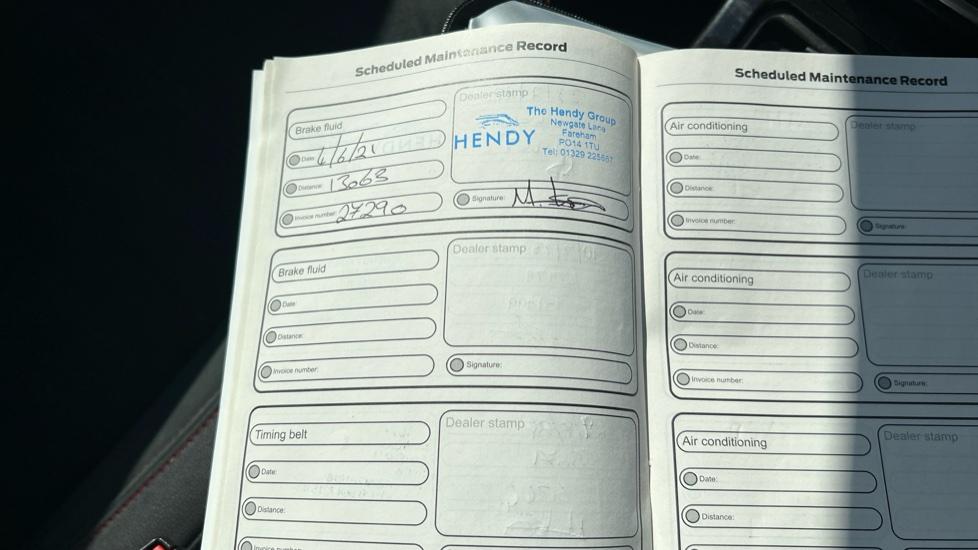 Scheduled Maintenance Record
Brake fluid
Date: 4/6/21
Distance: 13063
Invoice number: 27290
Dealer stamp
HENDY
The Hendy Group
Newgate Lane
Fareham
PO14 1TU
Tel: 01329 225667
Signature:
Brake fluid
Date:
Distance:
Invoice number:
Dealer stamp
Signature:
Timing belt
Date:
Distance:
Invoice number:
Dealer stamp
Scheduled Maintenance Record
Air conditioning
Date:
Distance:
Invoice number:
Dealer stamp
Signature:
Air conditioning
Date:
Distance:
Invoice number:
Dealer stamp
Signature:
Air conditioning
Date:
Distance:
Dealer stamp